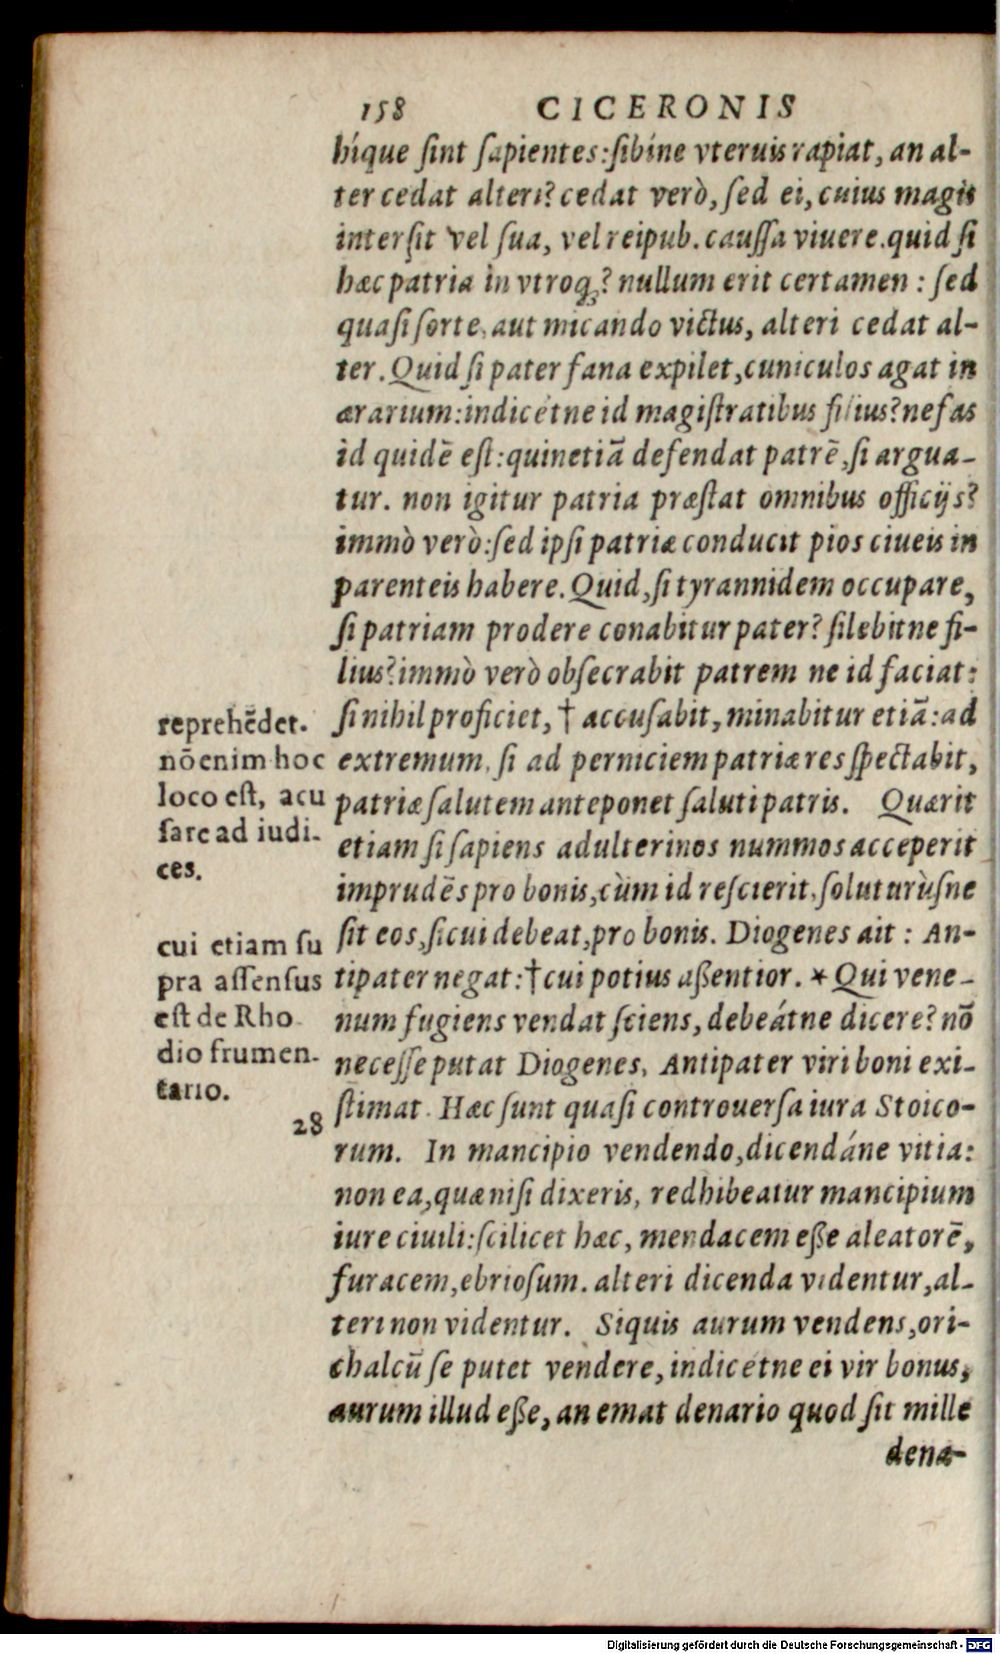 158 CICERONIS
híque ſint ſapientes:ſibíne vteruis rapiat, an al-
ter cedat alteri? cedat verò, ſed ei, cuius magis
interſit vel ſua, vel reipub. cauſſa viuere. quid ſi
hæc patria in vtroq;? nullum erit certamen : ſed
quaſi ſorte, aut micando victus, alteri cedat al-
ter. Quid ſi pater fana expilet, cuniculos agat in
ærarium: indicétne id magiſtratibus filius? nefas
id quidē eſt: quinetiā defendat patrē, ſi argua-
tur. non igitur patria præſtat omnibus officijs?
immò verò: ſed ipſi patriæ conducit pios ciueis in
parenteis habere. Quid, ſi tyrannidem occupare,
ſi patriam prodere conabitur pater? ſilebitne fi-
lius? immò verò obſecrabit patrem ne id faciat:
ſi nihil proficiet, † accuſabit, minabitur etiā: ad
extremum, ſi ad perniciem patriæ res ſpectabit,
patriæ ſalutem anteponet ſaluti patris. Quærit
etiam ſi ſapiens adulterinos nummos acceperit
imprudēs pro bonis, cùm id reſcierit, ſoluturùſne
ſit eos, ſi cui debeat, pro bonis. Diogenes ait : An-
tipater negat: † cui potius aßentior. * Qui vene-
num fugiens vendat ſciens, debeátne dicere? nō
neceſſe putat Diogenes, Antipater viri boni exi-
ſtimat. Hæc ſunt quaſi controuerſa iura Stoico-
rum. In mancipio vendendo, dicendáne vitia:
non ea, quæ niſi dixeris, redhibeatur mancipium
iure ciuili: ſcilicet hæc, mendacem eße aleatorē,
furacem, ebrioſum. alteri dicenda videntur, al-
teri non videntur. Siquis aurum vendens, ori-
chalcū ſe putet vendere, indicétne ei vir bonus,
aurum illud eße, an emat denario quod ſit mille
dena-
reprehēdet.
nō enim hoc
loco eſt, acu
ſare ad iudi-
ces.
cui etiam ſu
pra aſſenſus
eſt de Rho
dio frumen-
tario.
28
Digitalisierung gefördert durch die Deutsche Forschungsgemeinschaft - DFG